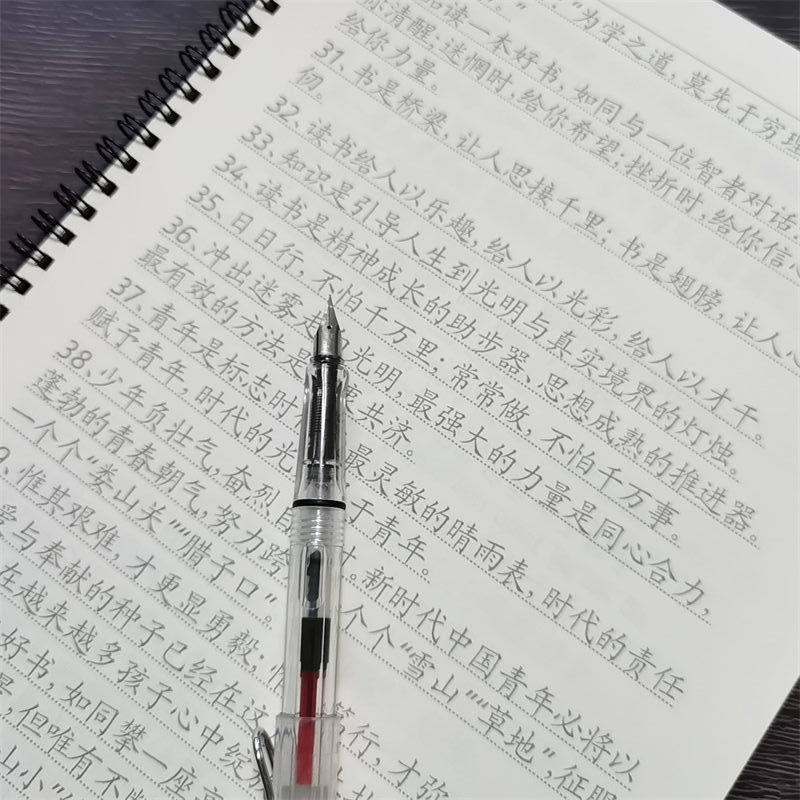 ”“为学之道，莫先于穷理
品读一本好书，如同与一位智者对话
你清醒；迷惘时，给你希望；挫折时，给你信心
给你力量。
31、书是桥梁，让人思接千里；书是翅膀，让人心
仞。
32、读书给人以乐趣，给人以光彩，给人以才干。
33、知识是引导人生到光明与真实境界的灯烛。
34、读书是精神成长的助步器、思想成熟的推进器。
35、日日行，不怕千万里；常常做，不怕千万事。
36、冲出迷雾走光明，最强大的力量是同心合力，
最有效的方法是共济。
37、青年是标志时最灵敏的晴雨表，时代的责任
赋予青年，时代的光于青年。
38、少年负壮气，奋烈自。新时代中国青年必将以
蓬勃的青春朝气，努力跨个个“雪山”“草地”，征服
一个个“娄山关”“腊子口”。
9、惟其艰难，才更显勇毅；惟笃行，才弥
爱与奉献的种子已经在这
在越来越多孩子心中绽放
好书，如同攀一座
，但唯有不断
山小”